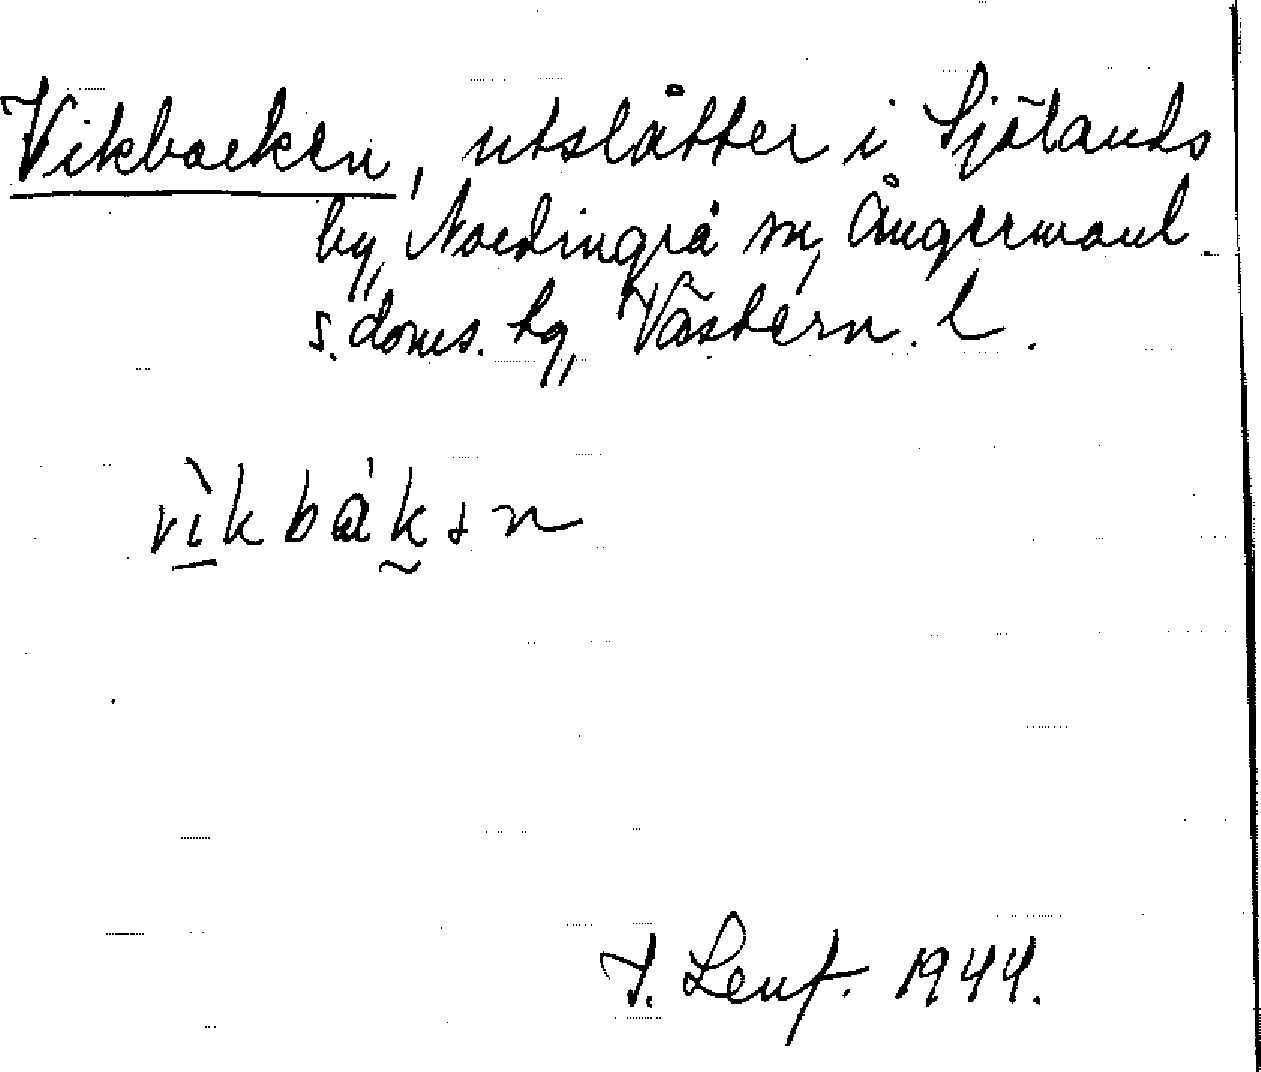 Vikbacken, utslåtter i Själands
by, Nordingrå sn, Ångermanl.
s. doms. hg, Västern. l.
vikbàkən
T. Lenf. 1944.